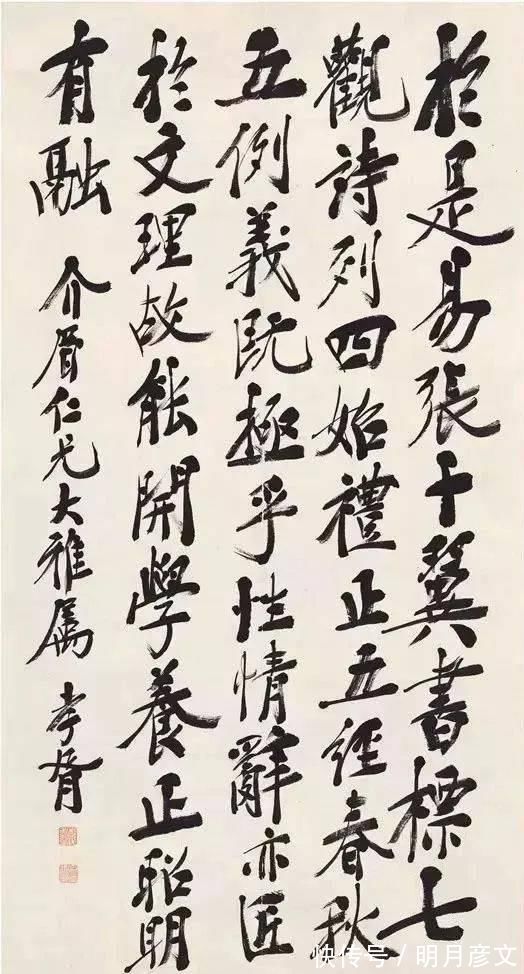 於是易張十翼書標七
觀詩列四始禮正五經春秋
五例義既極乎性情辭亦匠
於文理故能開學養正昭明
有融
介眉仁兄大雅属
孝胥
快传号/明月彦文